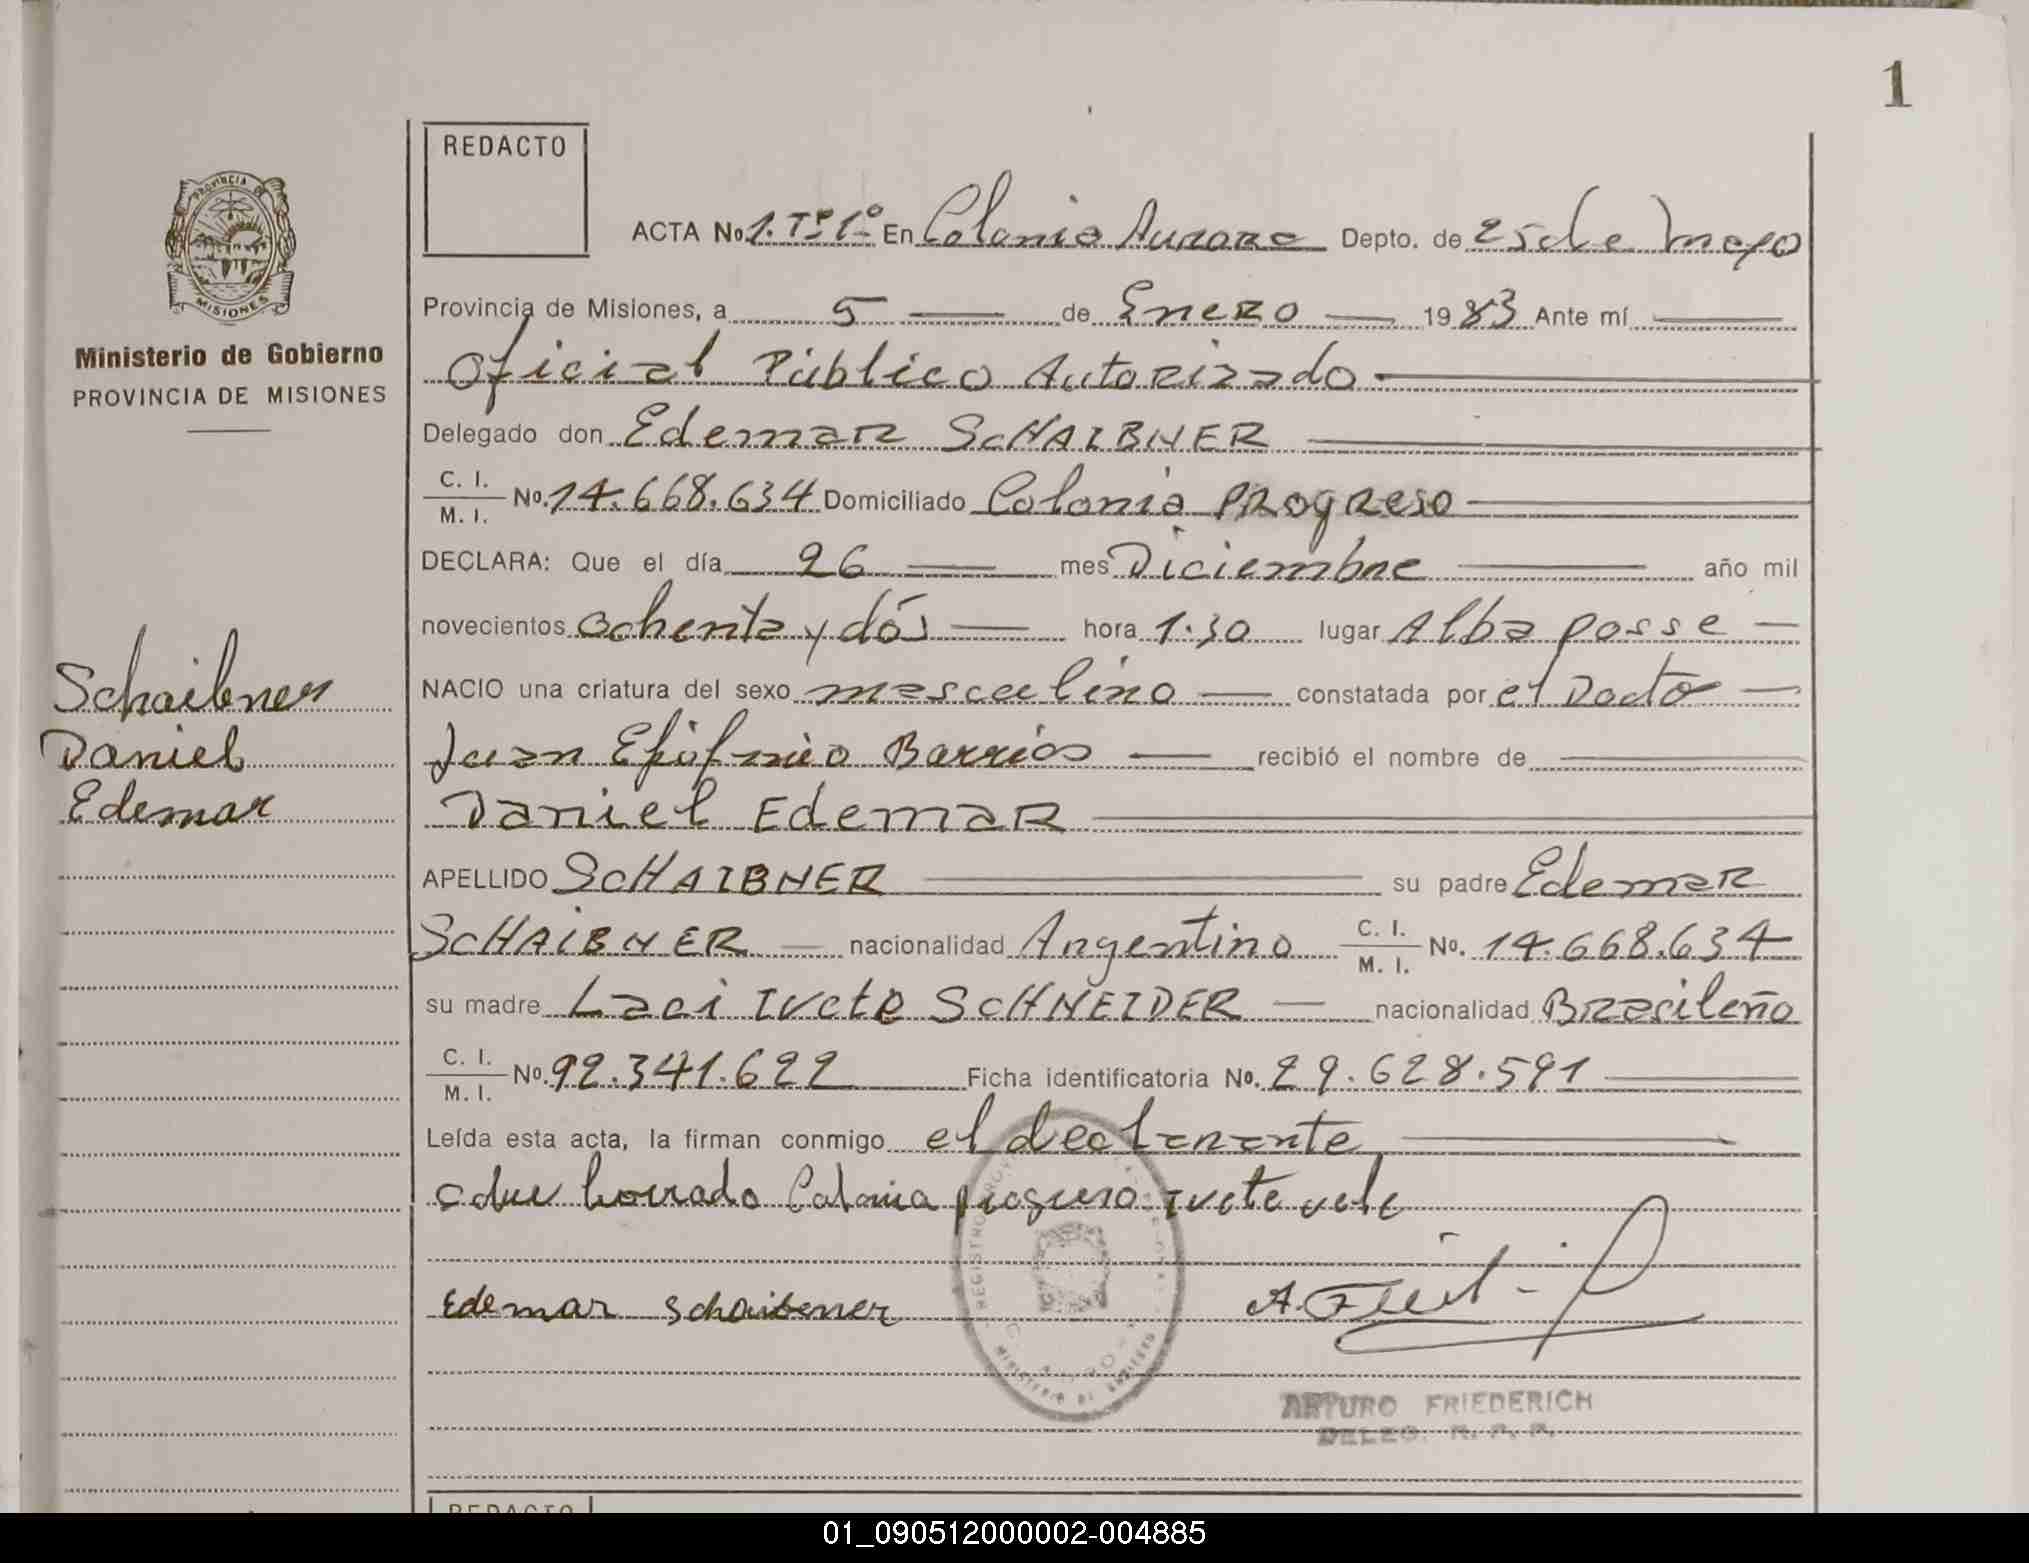 1
REDACTO
ACTA No. 1. Tº 1º En Colonia Aurora Depto. de 25 de Mayo
PROVINCIA DE
MISIONES
Provincia de Misiones, a 5 de Enero 1983 Ante mí
Ministerio de Gobierno
PROVINCIA DE MISIONES
Oficial Público Autorizado
Delegado don Edemar SCHAIBNER
C. I.
M. I. No. 14.668.634 Domiciliado Colonia PROGReso
DECLARA: Que el día 26 mes Diciembre año mil
novecientos ochenta y dós hora 1.30 lugar Alba posse
Schaibner
Daniel
Edemar
NACIO una criatura del sexo masculino constatada por el Docto
Juan Epifanio Barrios recibió el nombre de
Daniel Edemar
APELLIDO SCHAIBNER su padre Edemar
SCHAIBNER nacionalidad Argentino C. I.
M. I. No. 14.668.634
su madre Laci Ivete SCHNEIDER nacionalidad Brasileño
C. I.
M. I. No. 92.341.622 Ficha identificatoria No. 29.628.591
Leída esta acta, la firman conmigo el declarante
borrado Colonia progreso Ivete vale
Edemar Schaibener
REGISTRO
MINISTERIO DE GOBIERNO
ARTURO FRIEDERICH
DELEG. R. P. P.
REDACTO
01_090512000002-004885